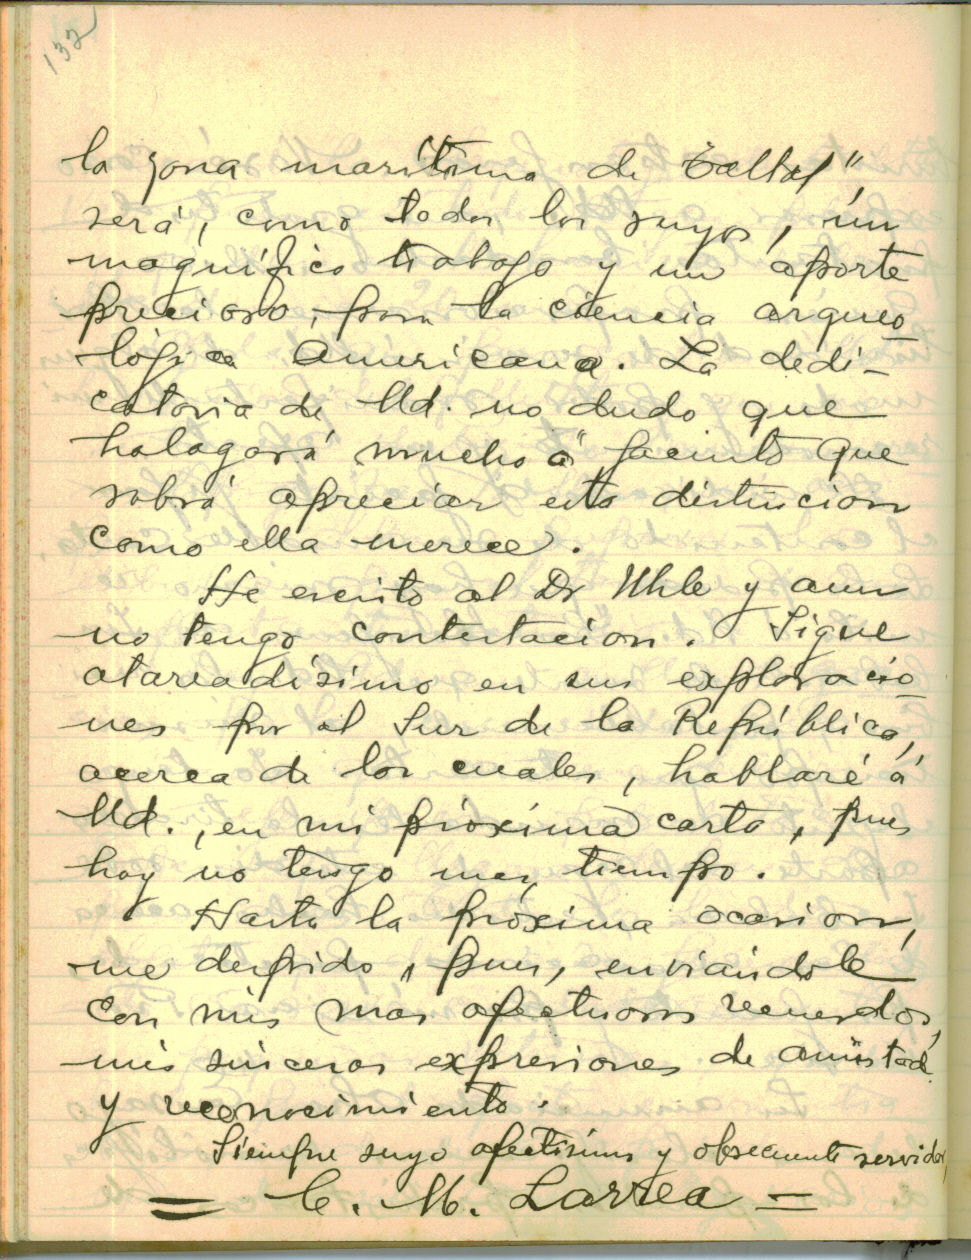 132
la zona marítima de Taltal"
será, como todos los suyos, un
magnífico trabajo y un aporte
precioso, para la ciencia arqueo-
lógica Americana. La dedi-
catoria de Ud. no dudo que
halagará mucho á Jacinto que
sabrá apreciar esta distincion
como ella merece.
He escrito al Dr Uhle y aun
no tengo contestacion. Sigue
atareadísimo en sus exploracio-
nes por el Sur de la República,
acerca de los cuales, hablaré á
Ud., en mi próxima carta, pues
hoy no tengo mas tiempo.
Hasta la próxima ocasion,
me despido, pues, enviándole
con mis mas afectuosos recuerdos,
mis sinceras expresiones de amistad
y reconocimiento.
Siempre suyo afectísimo y obsecuente servidor
= C. M. Larrea =